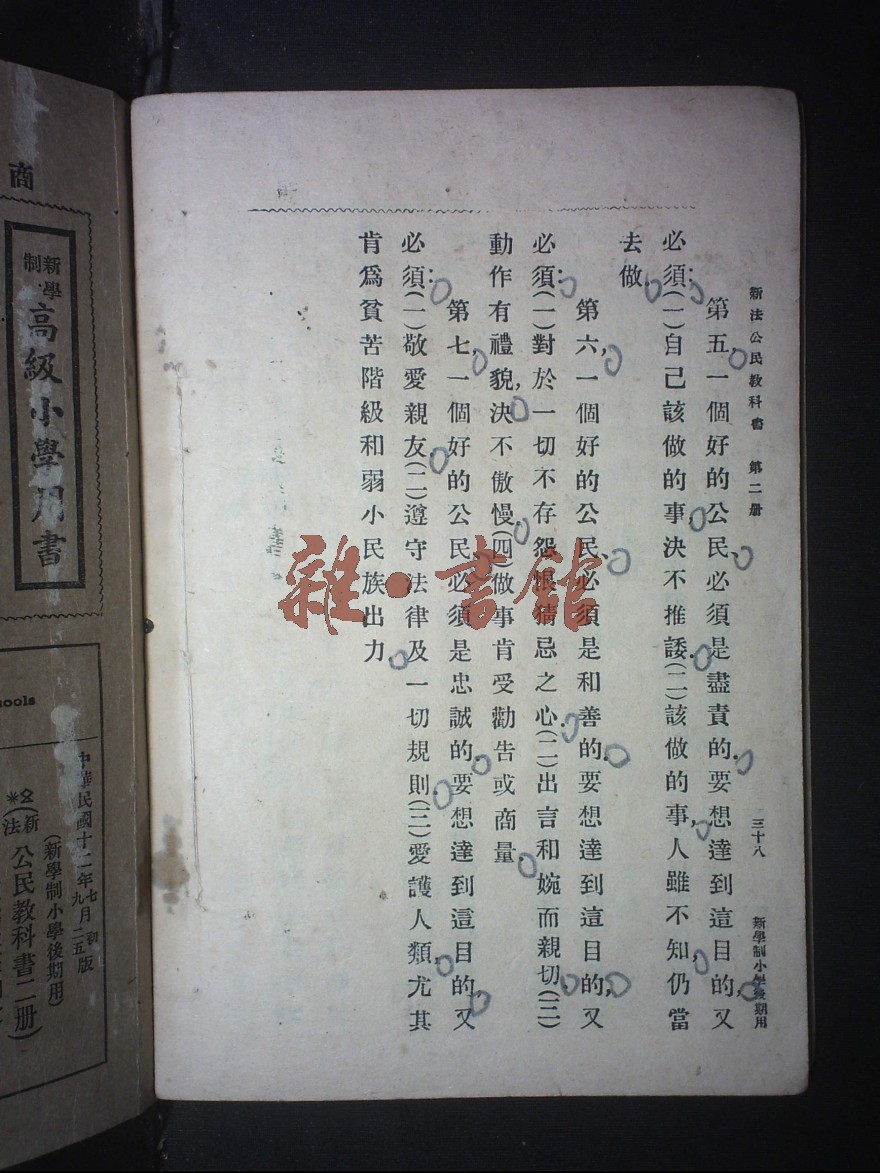 新法公民教科書 第二册 三十八 新學制小學後期用
第五,一個好的公民,必須是盡責的.要想達到這目的,又
必須:(一)自己該做的事,決不推諉.(二)該做的事,人雖不知,仍當
去做.
第六,一個好的公民,必須是和善的.要想達到這目的,又
必須:(一)對於一切不存怨恨猜忌之心.(二)出言和婉而親切.(三)
動作有禮貌,決不傲慢.(四)做事肯受勸告或商量.
第七,一個好的公民,必須是忠誠的.要想達到這目的,又
必須:(一)敬愛親友.(二)遵守法律及一切規則.(三)愛護人類,尤其
肯爲貧苦階級和弱小民族出力.
雜·書館
商
新學制
高級小學用書
ools
中華民國十二年七月初版
(新學制小學後期用)
(新法)公民教科書二册)